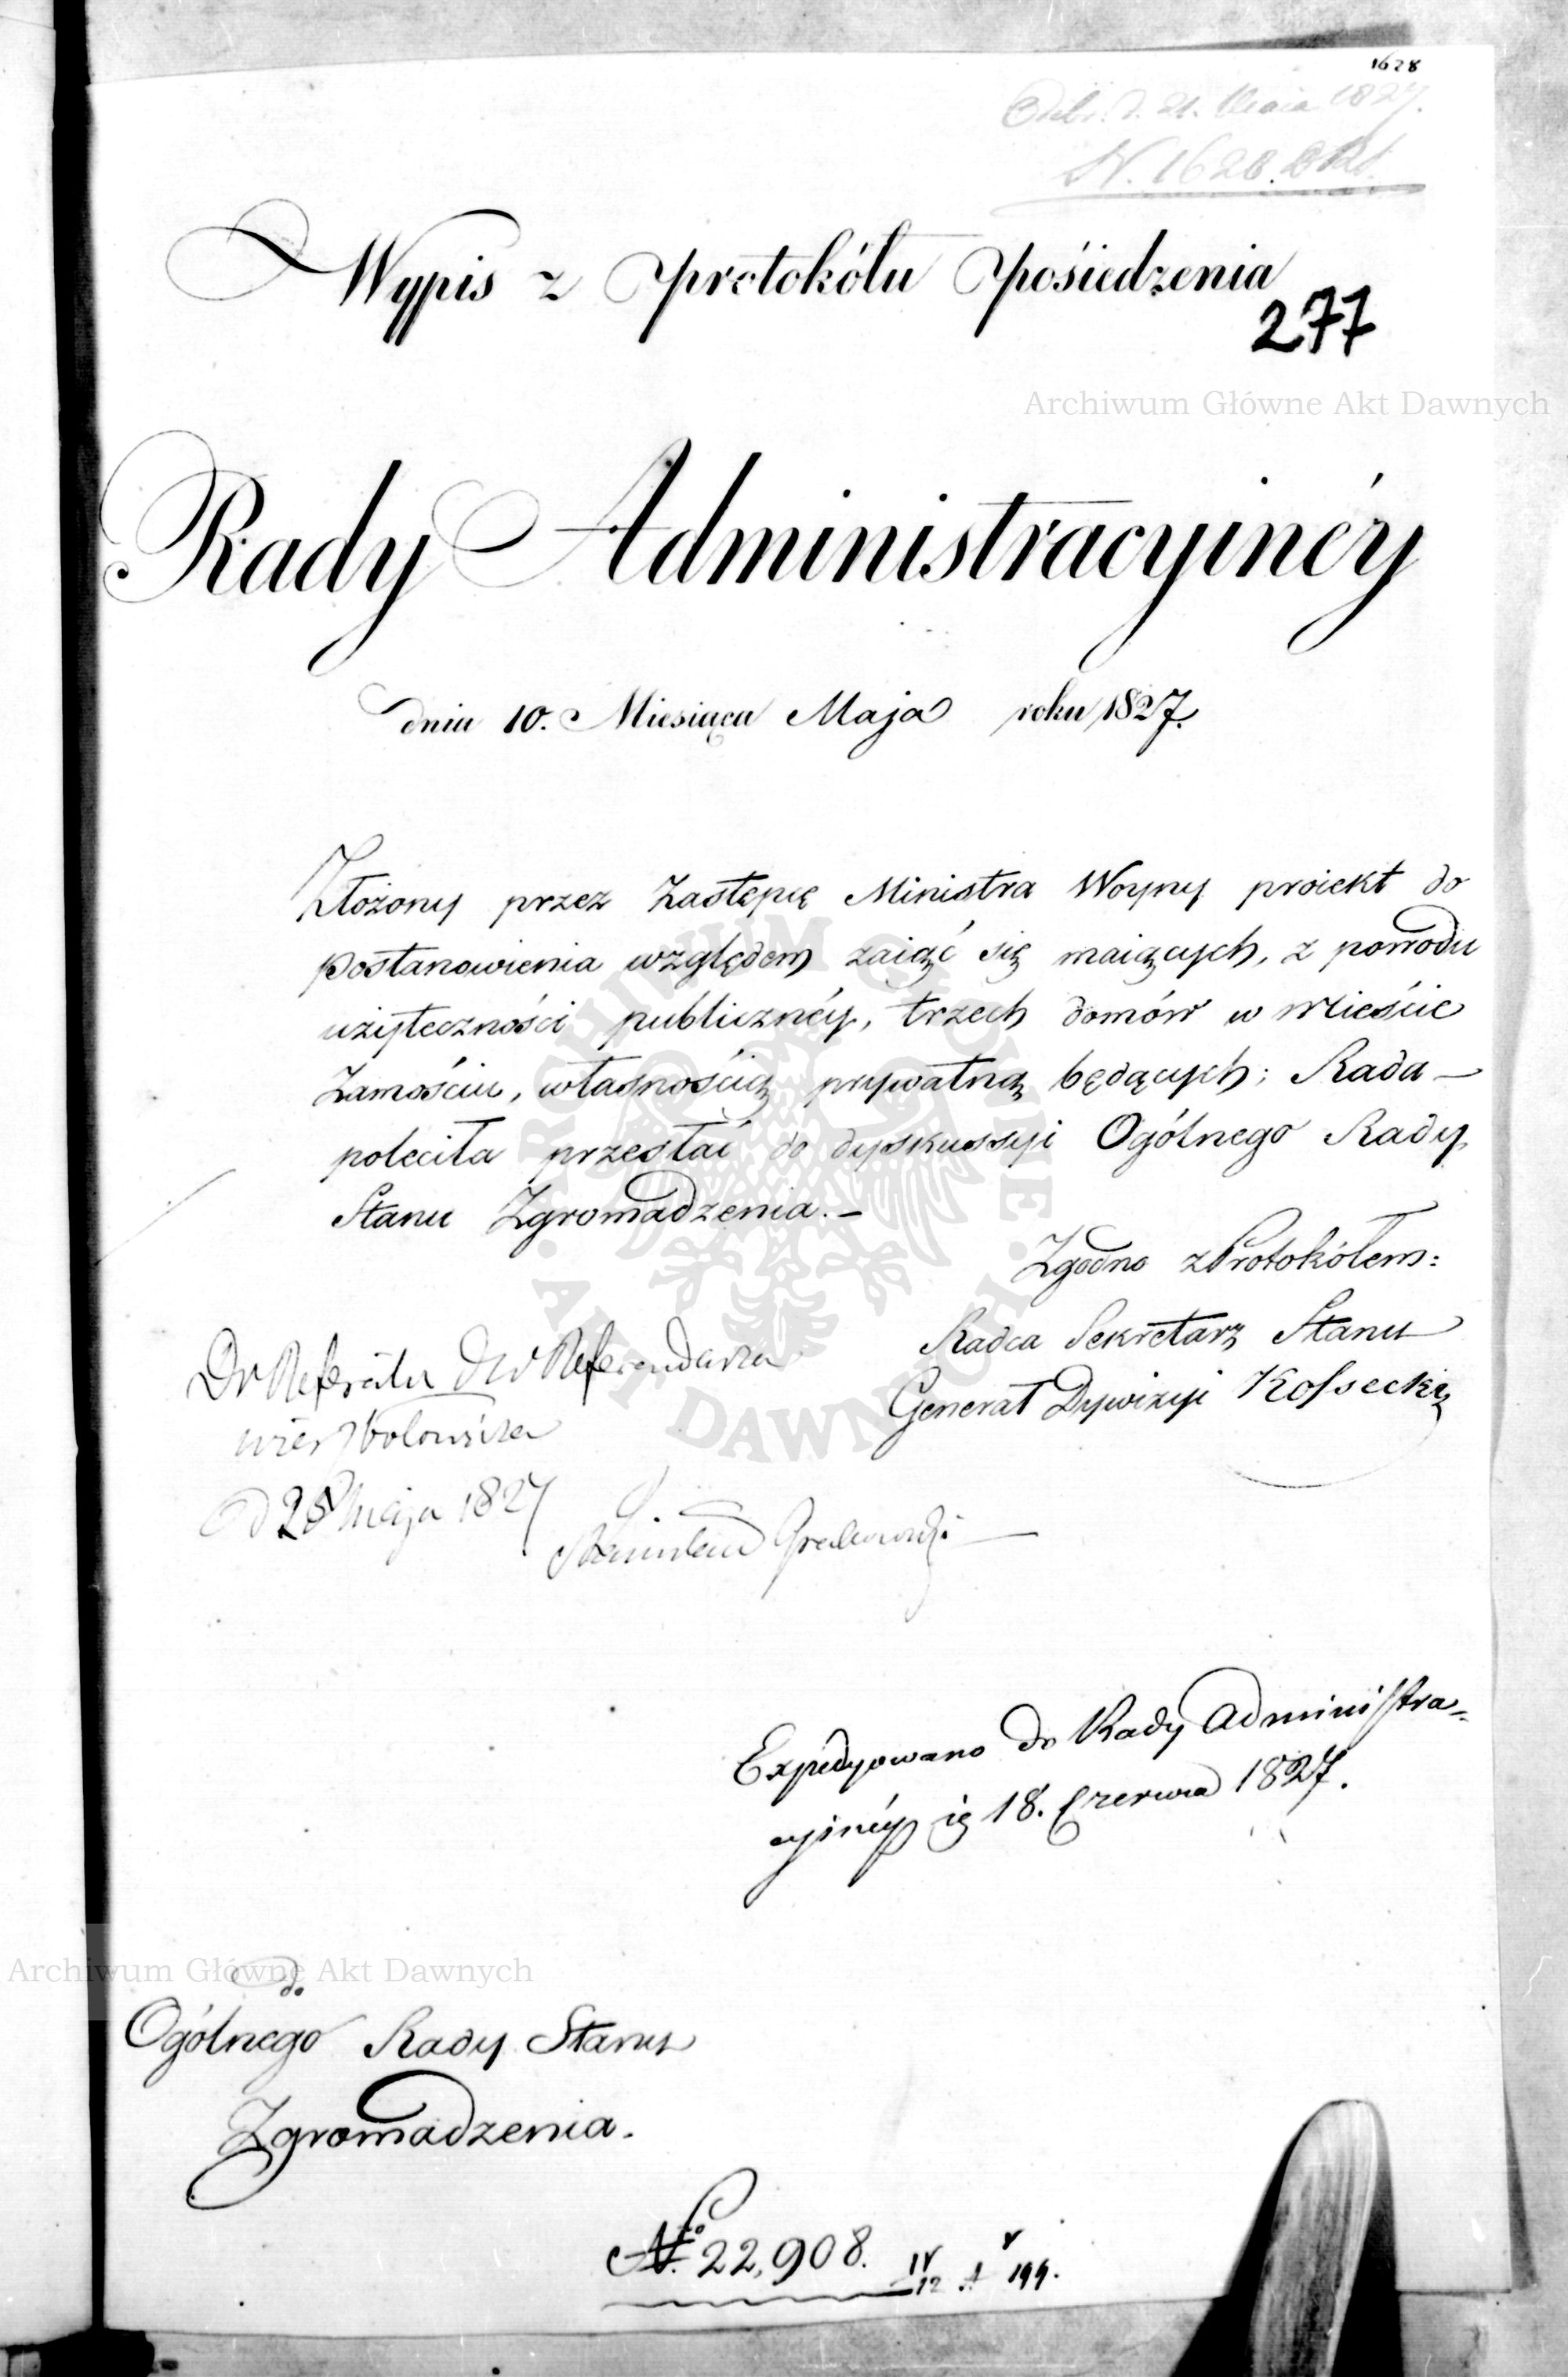 1628
Odebr. d. 21. Maia 1827.
N. 1628.
Wypis z protokółu pośiedzenia
277
Archiwum Główne Akt Dawnych
Rady Administracyinéy
dnia 10. Miesiąca Maja roku 1827.
Złożony przez Zastępcę Ministra Woyny proiekt do
postanowienia względem zaiąć się maiących, z powodu
użyteczności publicznéy, trzech domów w Mieście
Zamościu, własnością prywatną będących; Rada —
poleciła przesłać do dyskussyi Ogólnego Rady
Stanu Zgromadzenia. —
Zgodno z Protokółem:
Radca Sekretarz Stanu
Generał Dywizyi Kossecki
Do Referatu JW Referendarza
Wołowskiego
d 28 Maja 1827
Stanisław Grabowski
Expedyowano do Rady Administra-
cyinéy ig 18. Czerwca 1827.
Archiwum Główne Akt Dawnych
do
Ogólnego Rady Stanu
Zgromadzenia.
No. 22,908. IV/12 A 199.
ARCHIWUM GŁÓWNE AKT DAWNYCH